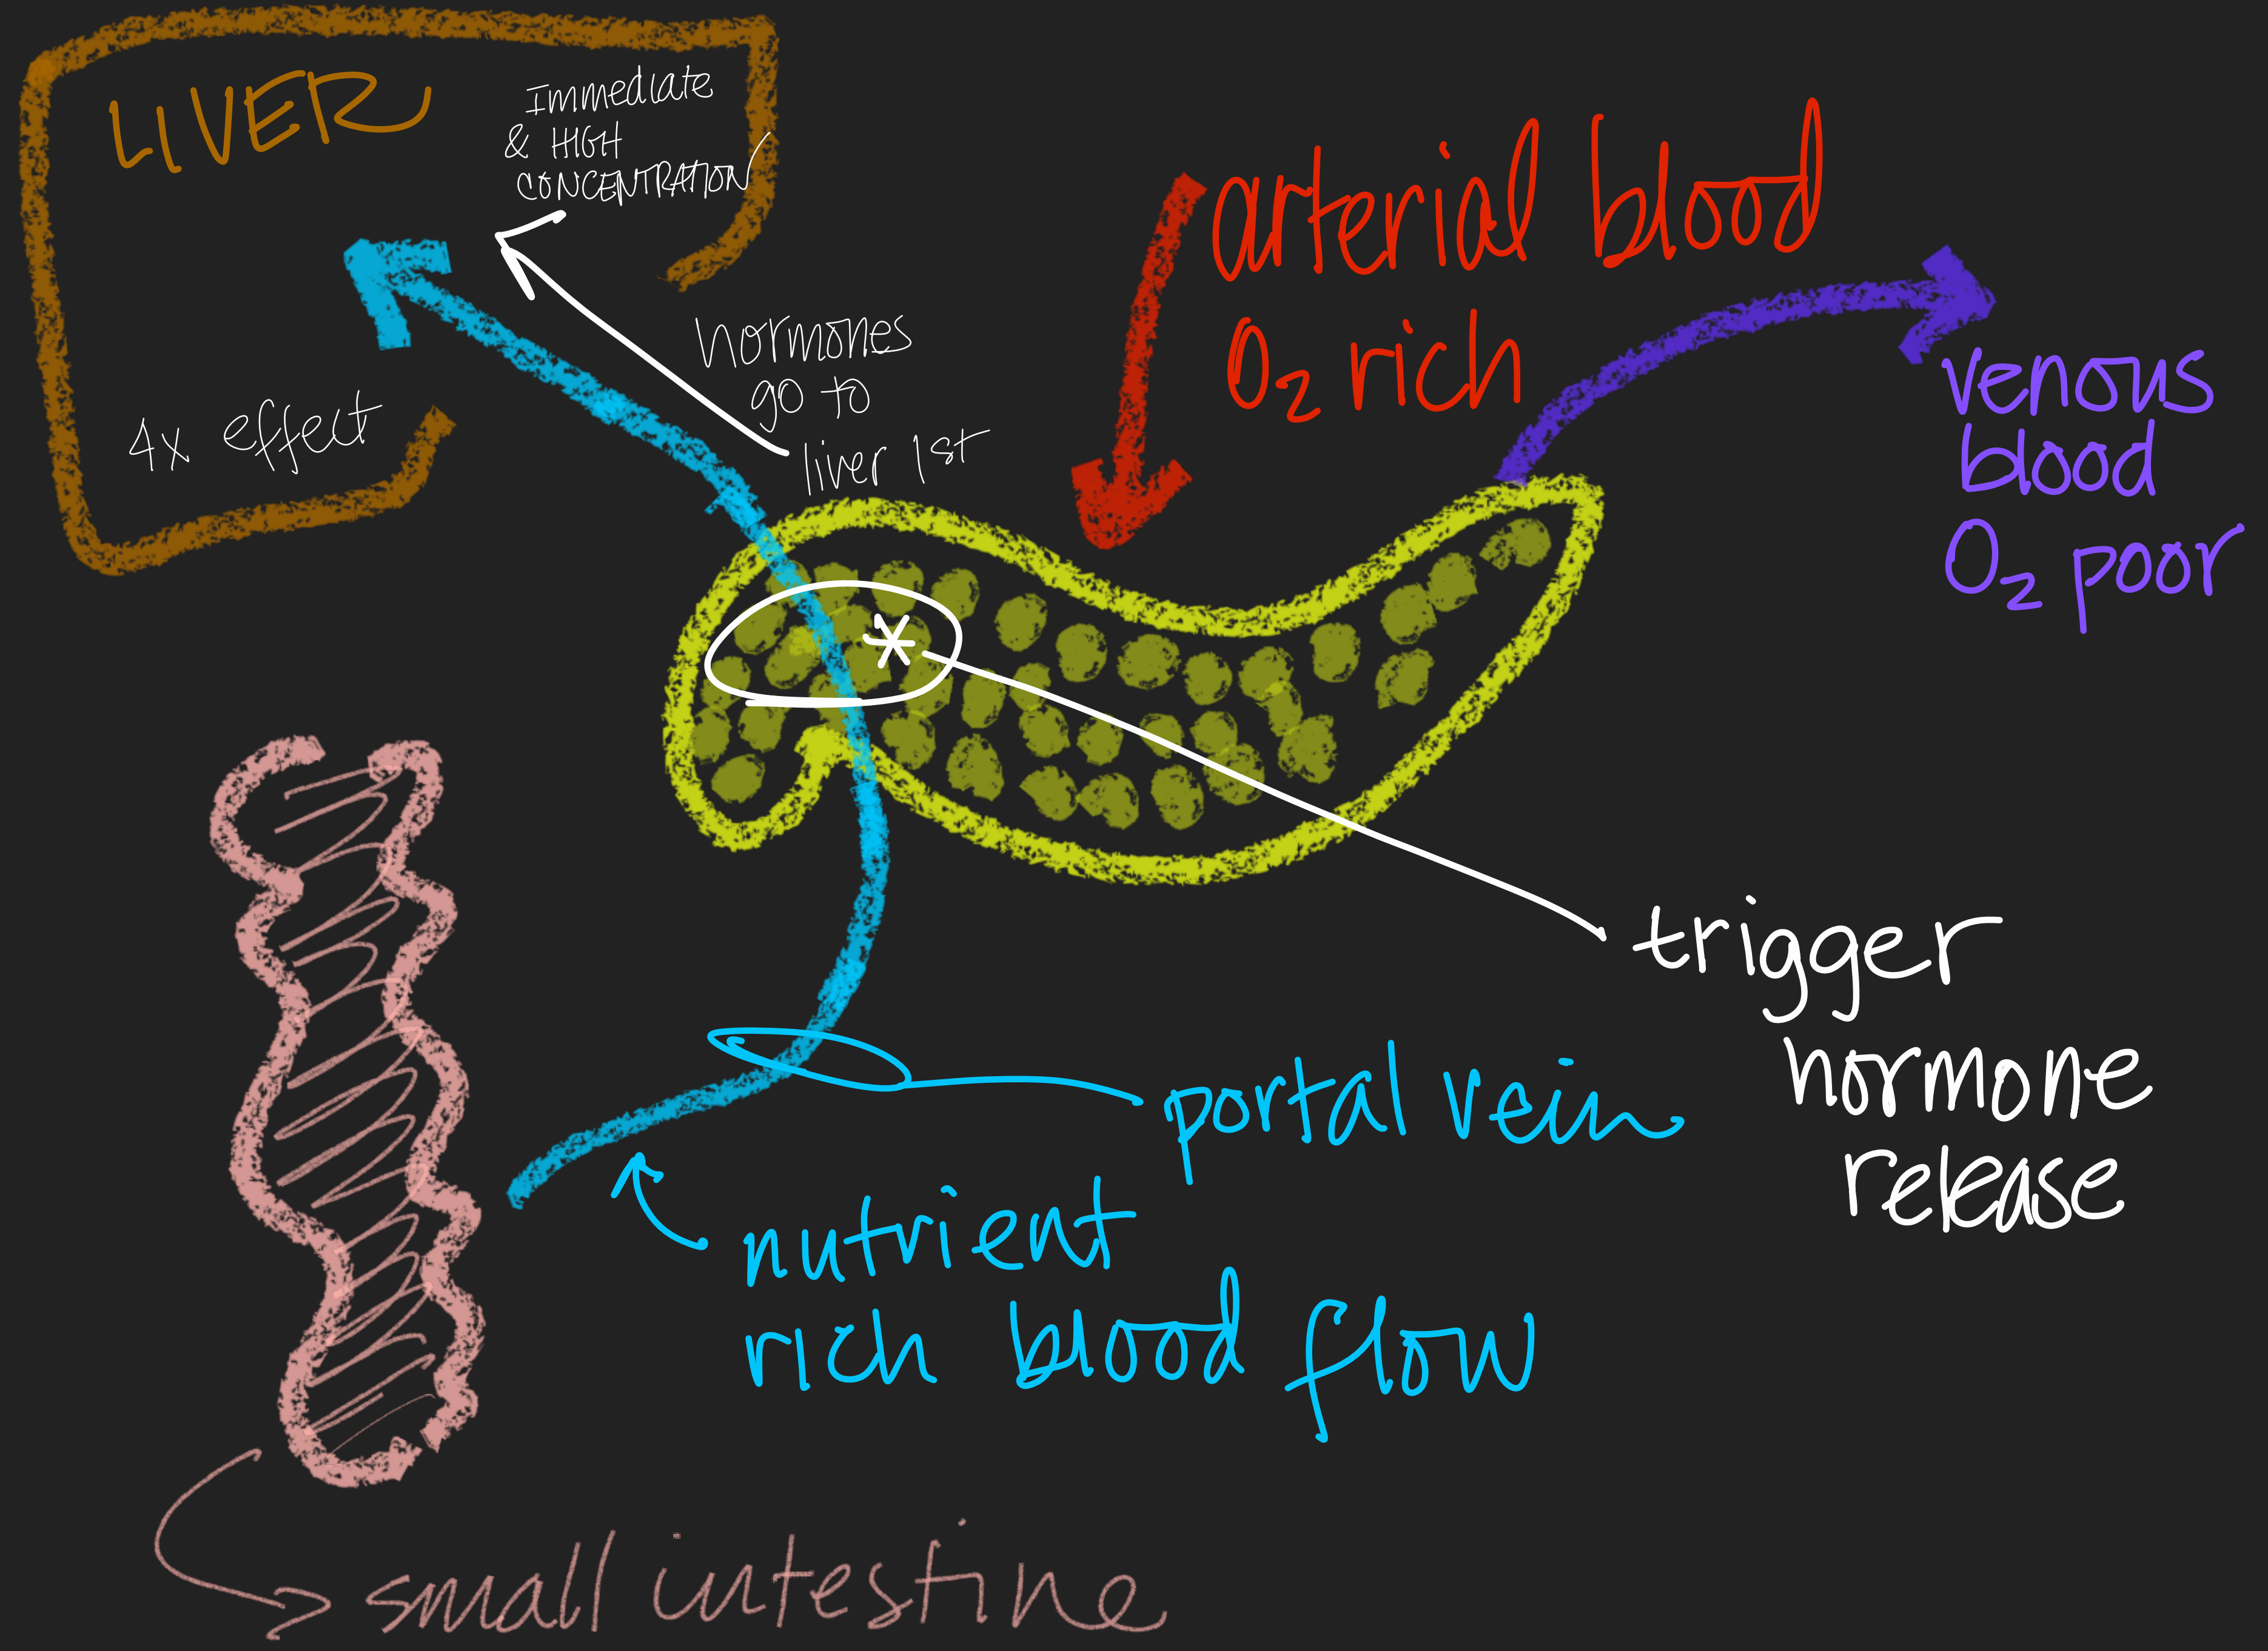 LIVER
Immediate
& HIGH
CONCENTRATION
4x effect
hormones
go to
liver 1st
arterial blood
O₂ rich
venous
blood
O₂ poor
trigger
hormone
release
portal vein
nutrient
rich blood flow
small intestine